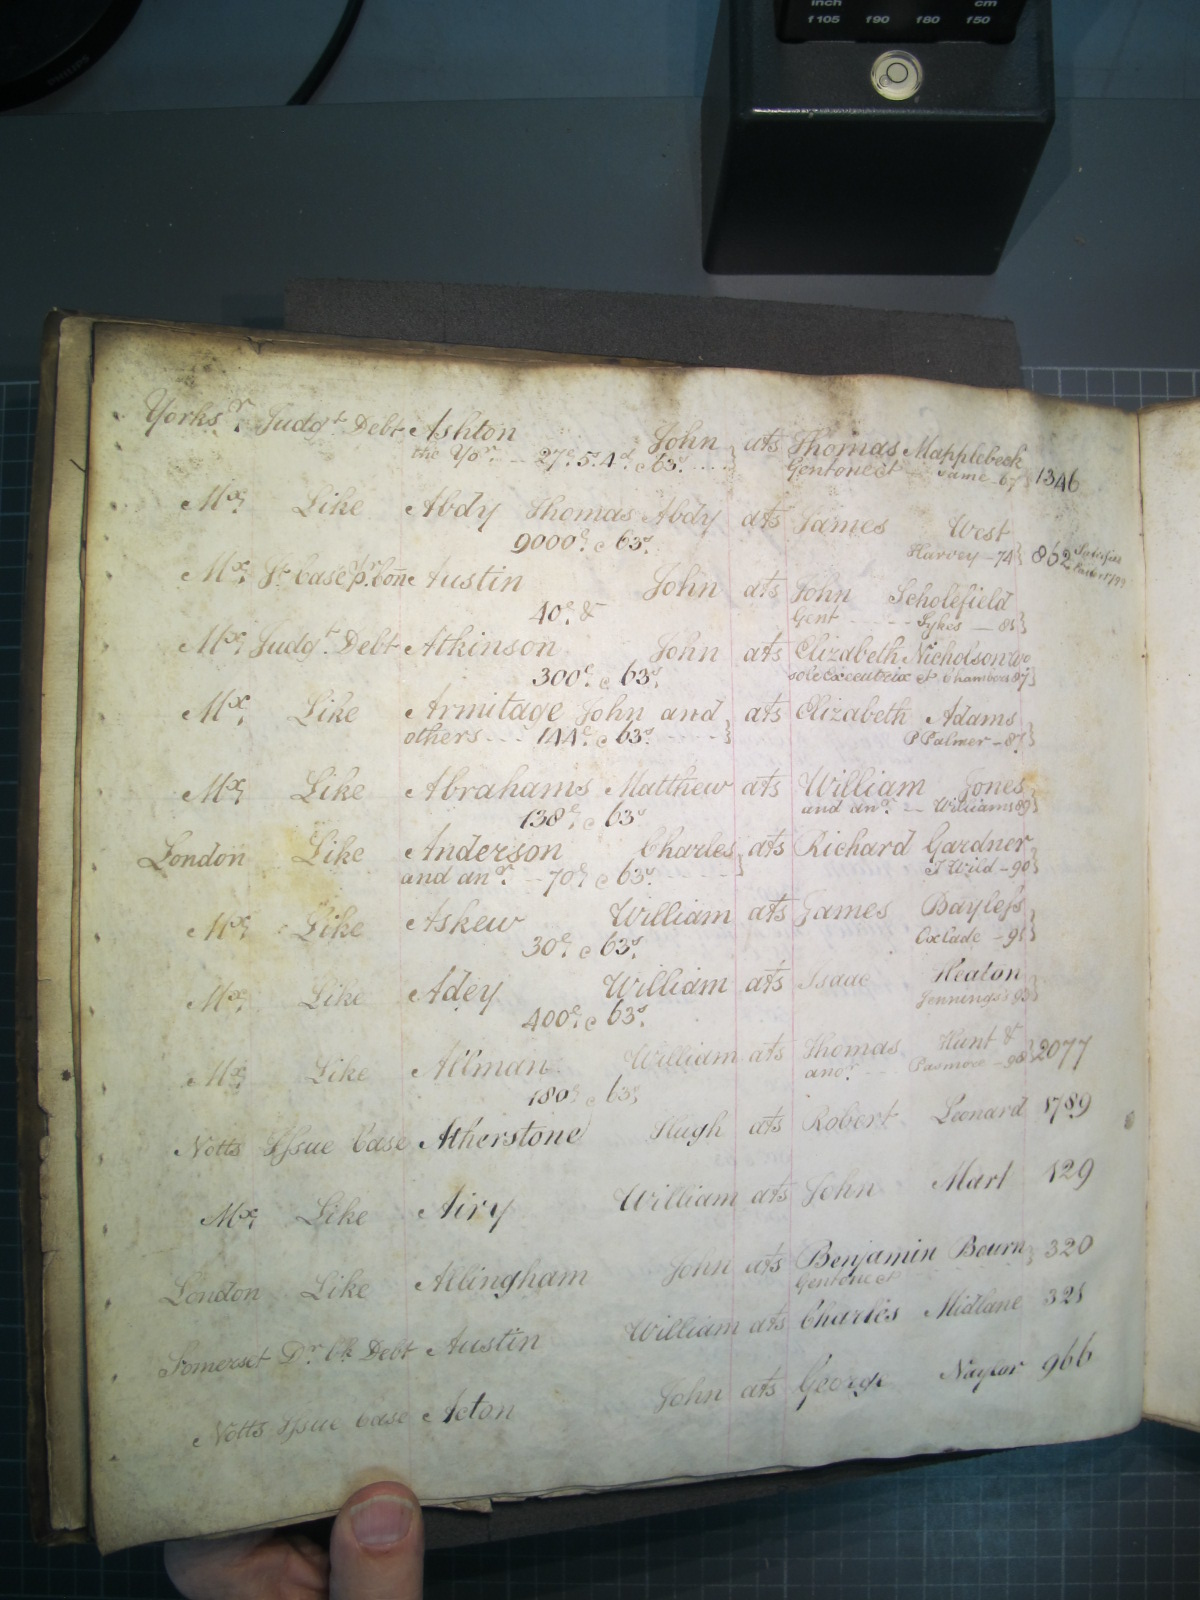 inch cm
f105 f90 f80 f50
PHILIPS
Yorks.r Judg.t Debt Ashton John ats Thomas Mapplebeck
the Yo.r --- 27£.5.4d. c 63s. .... Gent one &c Same 67} 1346
Mx. Like Abdy Thomas Abdy ats James West
9000£. c 63s. Harvey - 74} 862
Mx. Austin John ats John Scholefield
40£. & Gent ---- Sykes - 81}
Mx. Judg.t Debt Atkinson John ats Elizabeth Nicholson Wo
300£. c 63s. sole Executrix &c Chambers 87}
Mx. Like Armitage John and ats Elizabeth Adams
others --- 144£. c 63s. ----} P Palmer - 87}
Mx. Like Abrahams Matthew ats William Jones
138£. c 63s and an.r -- Williams 89}
London Like Anderson Charles ats Richard Gardner
and an.r -- 70£. c 63s. J Wild - 90}
Mx. Like Askew William ats James Bayless
30£. c 63s Oxlade - 91}
Mx. Like Adey William ats Isaac Heaton
400£. c 63s. Jennings 93}
Mx. Like Allman William ats Thomas Hunt &
180£. c 63s ano.r --- Pasmore - 98} 2077
Notts Issue Case Atherstone Hugh ats Robert Leonard 1789
Mx. Like Airy William ats John Marl 129
London Like Allingham John ats Benjamin Bourn 320
Gent one &c
Somerset D.r Ck Debt Austin William ats Charles Midlane 321
Notts Issue Case Acton John ats George Naylor 966